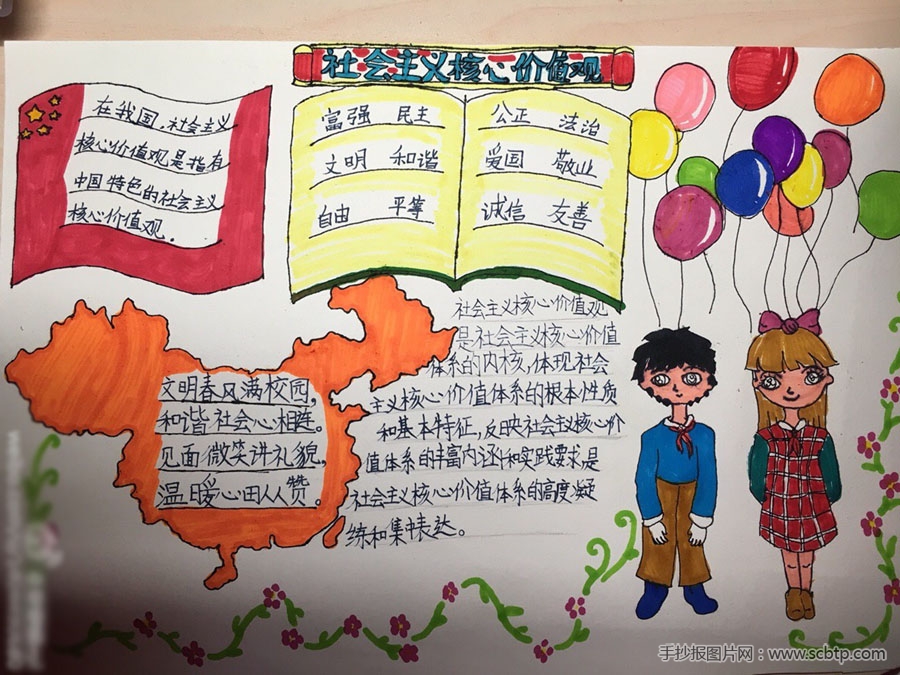 社会主义核心价值观
在我国,社会主义
核心价值观是指有
中国特色的社会主义
核心价值观。
富强 民主
文明 和谐
自由 平等
公正 法治
爱国 敬业
诚信 友善
文明春风满校园,
和谐社会心相连。
见面微笑讲礼貌,
温暖心田人人赞。
社会主义核心价值观
是社会主义核心价值
体系的内核,体现社会
主义核心价值体系的根本性质
和基本特征,反映社会主义核心价
值体系的丰富内涵和实践要求是
社会主义核心价值体系的高度凝
练和集中表达。
手抄报图片网:www.scbtp.com